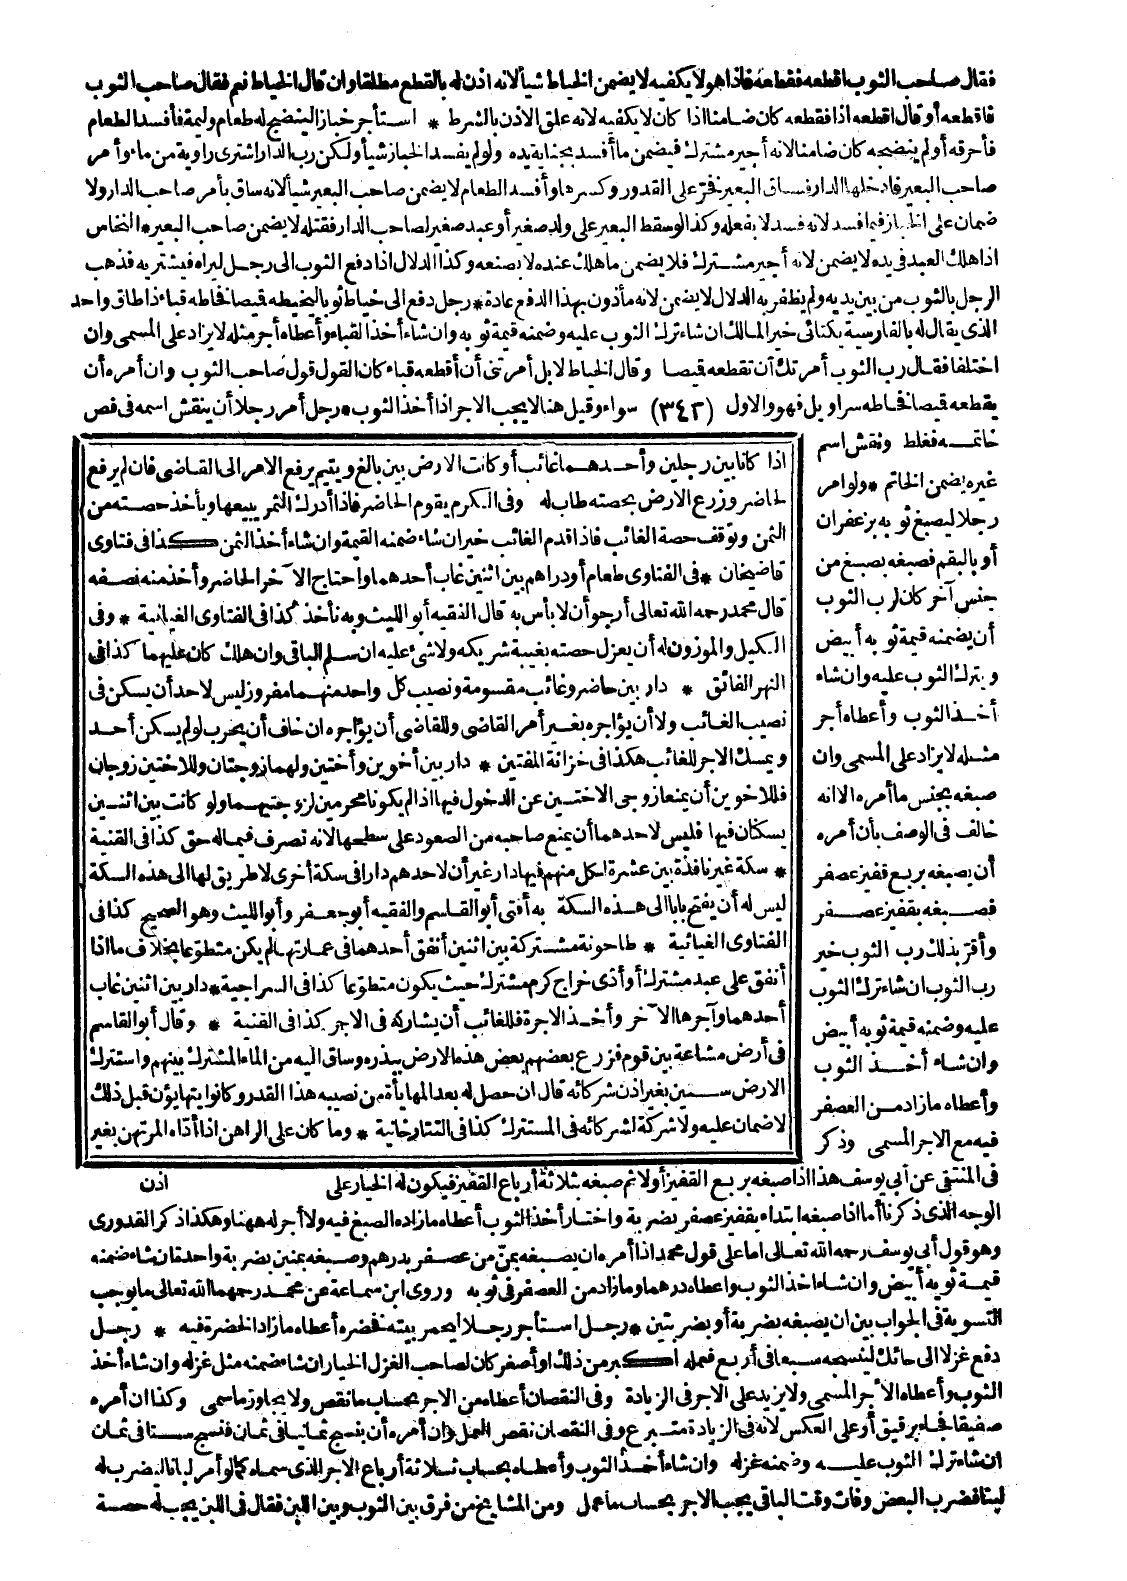 فقال صاحب الثوب اقطعه فقطعه فاذا هو لا يكفيه لا يضمن الخياط شيأ لانه اذن له بالقطع مطلقا وان قال الخياط نعم فقال صاحب الثوب
فاقطعه أو قال اقطعه اذا فقطعه كان ضامنا اذا كان لا يكفيه لانه علق الاذن بالشرط * استأجر خبازا ليتضج له طعام وليمة فأفسد الطعام
فأحرقه أو لم ينضجه كان ضامنا لانه أجير مشترك فيضمن ما أفسد بجناية يده ولو لم يفسد الخباز شيأ ولكن رب الدار اشترى راوية من ماء وأمر
صاحب البعير فادخلها الدار فساق البعير فخر على القدور وكسرها وأفسد الطعام لا يضمن صاحب البعير شيأ لانه ساق بأمر صاحب الدار ولا
ضمان على الخباز فيما فسد لانه فسد لا بفعله وكذا لو سقط البعير على ولد صغير أو عبد صغير لصاحب الدار فقتله لا يضمن صاحب البعير * النخاس
اذا هلك العبد في يده لا يضمن لانه أجير مشترك فلا يضمن ما هلك عنده لا بصنعه وكذا الدلال اذا دفع الثوب الى رجل ليراه فيشتريه فذهب
الرجل بالثوب من بين يديه ولم يظفر به الدلال لا يضمن لانه مأذون بهذا الدفع عادة * رجل دفع الى خياط ثوبا ليخيطه قيصا فخاطه قباء ذا طاق واحد
الذى يقال له بالفارسية يكتائى خير المالك ان شاء ترك الثوب عليه وضمنه قيمة ثوبه وان شاء أخذ القباء وأعطاه أجر مثله لا يزاد على المسمى وان
اختلفا فقال رب الثوب أمرتك أن تقطعه قيصا وقال الخياط لا بل أمرتنى أن أقطعه قباء كان القول قول صاحب الثوب وان أمره أن
يقطعه قيصا فخاطه سراويل فهو والاول (٣٤٣) سواء وقيل هنا لا يجب الاجر اذا أخذ الثوب * رجل أمر رجلا أن ينقش اسمه فى فص
خاتمه فغلط ونقش اسم
غيره يضمن الخاتم * ولو امر
رجلا ليصبغ ثوبه بزعفران
أو بالبقم فصبغه بصبغ من
جنس آخر كان لرب الثوب
أن يضمنه قيمة ثوبه أبيض
ويترك الثوب عليه وان شاء
أخذ الثوب وأعطاه أجر
مثله لا يزاد على المسمى وان
صبغه بجنس ما أمره الا انه
خالف فى الوصف بأن أمره
أن يصبغه بربع قفيز عصفر
فصبغه بقفيز عصفر
وأقر بذلك رب الثوب خير
رب الثوب ان شاء ترك الثوب
عليه وضمنه قيمة ثوبه أبيض
وان شاء أخذ الثوب
وأعطاه ما زاد من العصفر
فيه مع الاجر المسمى وذكر
اذا كانا بين رجلين وأحدهما غائب أو كانت الارض بين بالغ ويتيم يرفع الامر الى القاضى فان لم يرفع
الحاضر وزرع الارض بحصته طاب له وفى الكرم يقوم الحاضر فاذا أدرك الثمر يبيعها ويأخذ حصته من
الثمن وتوقف حصة الغائب فاذا قدم الغائب خيران شاء ضمنه القيمة وان شاء أخذ الثمن كذا فى فتاوى
قاضيخان * فى الفتاوى طعام أو دراهم بين اثنين غاب أحدهما واحتاج الآخر الحاضر وأخذ منه نصفه
قال محمد رحمه الله تعالى أرجو أن لا بأس به قال الفقيه أبو الليث وبه نأخذ كذا فى الفتاوى الغياثية * وفى
الكيل والموزون له أن يعزل حصته بغيبة شريكه ولا شئ عليه ان سلم الباقى وان هلك كان عليهما كذا فى
النهر الفائق * دار بين حاضر وغائب مقسومة ونصيب كل واحد منهما مفروز ليس لاحد أن يسكن فى
نصيب الغائب ولا أن يؤاجره بغير أمر القاضى وللقاضى أن يؤاجره ان خاف أن يخرب لو لم يسكن أحد
ويمسك الاجر للغائب هكذا فى خزانة المفتين * دار بين أخوين وأختين ولهما زوجتان وللاختين زوجان
فللاخوين أن يمنعا زوجى الاختين عن الدخول فيها اذا لم يكونا محرمين لزوجتيهما ولو كانت بين اثنين
يسكنان فيها فليس لاحدهما أن يمنع صاحبه من الصعود على سطحها لانه تصرف فيما له حق كذا فى القنية
* سكة غير نافذة بين عشرة لكل منهم فيها دار غير أن لاحدهم دارا فى سكة أخرى لا طريق لها الى هذه السكة
ليس له أن يفتح بابا الى هذه السكة به أفتى أبو القاسم والفقيه أبو جعفر وأبو الليث وهو الصحيح كذا فى
الفتاوى الغيائية * طاحونة مشتركة بين اثنين أنفق أحدهما فى عمارتها لم يكن متطوعا بخلاف ما اذا
أنفق على عبد مشترك أو أدى خراج كرم مشترك حيث يكون متطوعا كذا فى السراجية * دار بين اثنين غاب
أحدهما وآجرها الآخر وأخذ الاجرة فللغائب أن يشاركه فى الاجر كذا فى القنية * وقال أبو القاسم
فى أرض مشاعة بين قوم فزرع بعضهم بعض هذه الارض ببذره وساق اليه من الماء المشترك بينهم واستترك
الارض سنين بغير اذن شركائه قال ان حصل له بعد المهايأة من نصيبه هذا القدر وكانوا يتهايؤن قبل ذلك
لا ضمان عليه ولا شركة لشركائه فى المستترك كذا فى التتارخانية * وما كان على الراهن اذا أداه المرتهن بغير
اذن
فى المنتقى عن أبى يوسف هذا اذا صبغه بربع القفيز أولا ثم صبغه بثلاثة أرباع القفيز فيكون له الخيار على
الوجه الذى ذكرنا أما اذا صبغه ابتداء بقفيز عصفر بضربة واختار أخذ الثوب أعطاه ما زاده الصبغ فيه ولا أجر له ههنا وهكذا ذكر القدورى
وهو قول أبى يوسف رحمه الله تعالى اما على قول محمد اذا أمره ان يصبغه بمن من عصفر بدرهم وصبغه بمنين بضربة واحدة ان شاء ضمنه
قيمة ثوبه أبيض وان شاء اخذ الثوب واعطاه درهما وما زاد من العصفر فى ثوبه وروى ابن سماعة عن محمد رحمهما الله تعالى ما يوجب
التسوية فى الجواب بين ان يصبغه بضربة أو بضربتين * رجل استأجر رجلا ليحمر بيته فخضره أعطاه ما زاد الخضرة فيه * رجل
دفع غزلا الى حائك لينسجه سبعا فى أربع فعمله اكبر من ذلك او أصغر كان لصاحب الغزل الخيار ان شاء ضمنه مثل غزله وان شاء أخذ
الثوب وأعطاه الأجر المسمى ولا يزيد على الاجر فى الزيادة وفى النقصان أعطاه من الاجر بحساب ما نقص ولا يجاوز ما سمى وكذا ان أمره
صفيقا فجاء برقيق أو على العكس لانه فى الزيادة متبرع وفى النقصان نقص العمل وان أمره أن ينسج ثمانيا فى ثمان فنسج ستا فى ثمان
ان شاء ترك الثوب عليه وضمنه غزله وان شاء أخذ الثوب وأعطاه بحساب ثلاثة أرباع الاجر الذى سماه كما لو أمر لبانا ليضرب له
لبنا فضرب البعض وفات وقت الباقى يجب الاجر بحساب ما عمل ومن المشايخ من فرق بين الثوب وبين اللبن فقال فى اللبن يجب له حصة